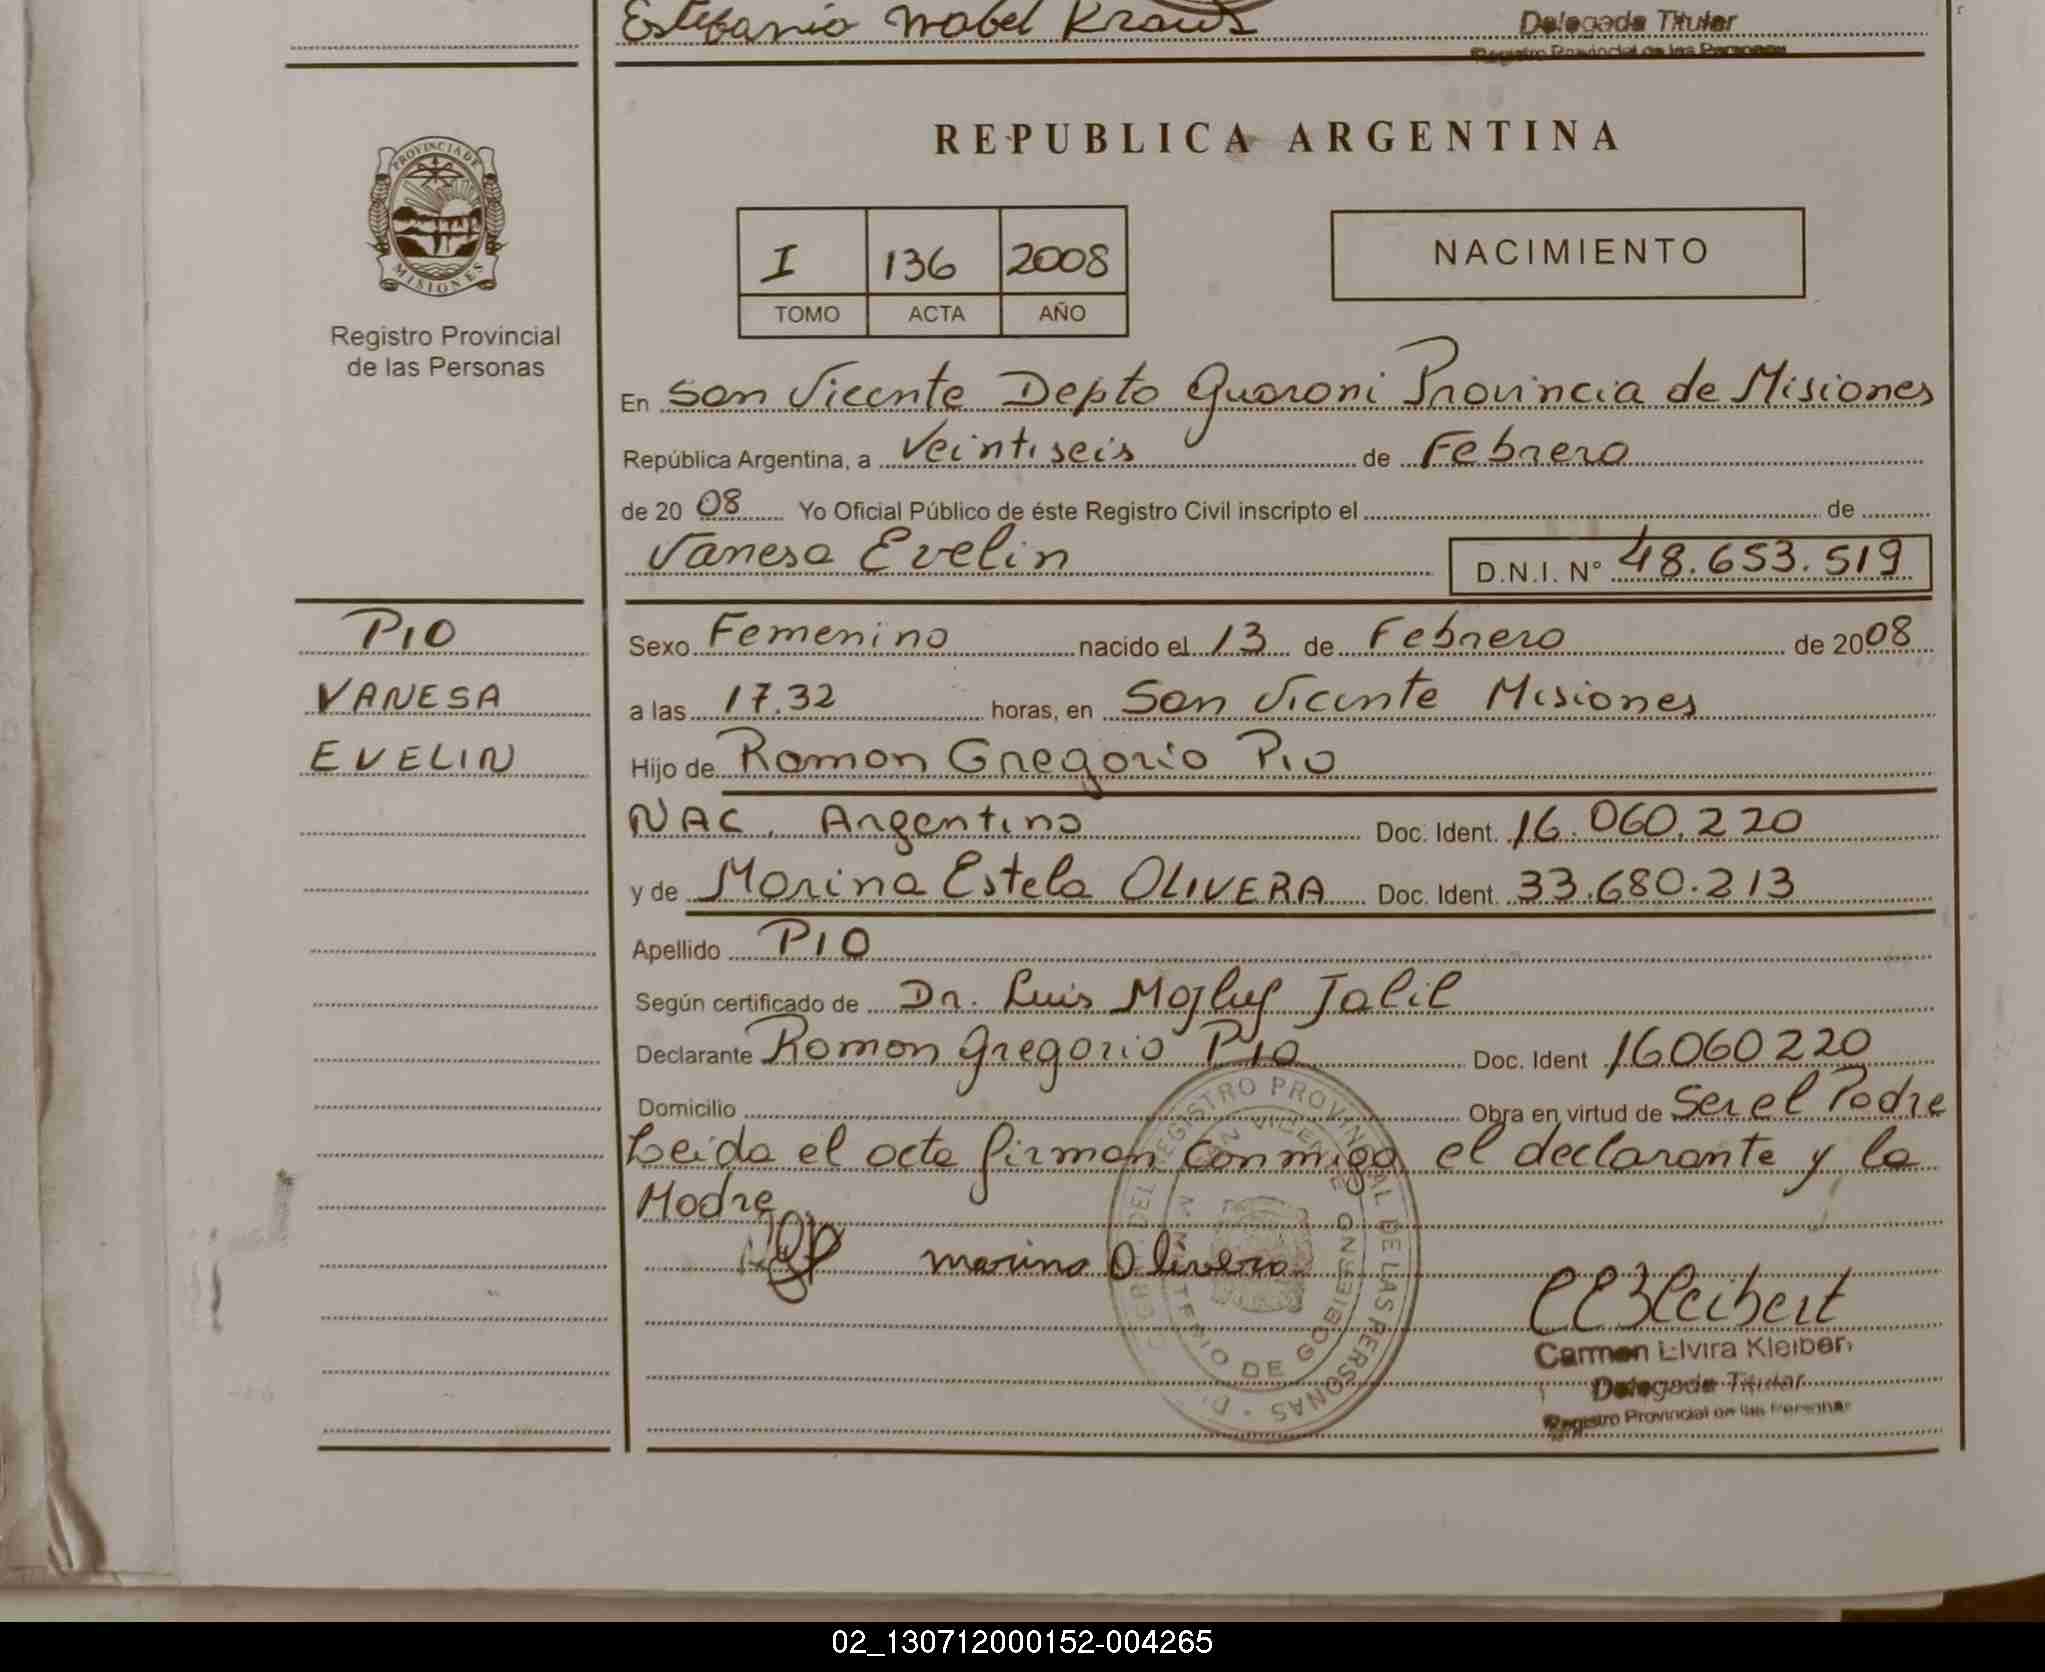 Estefania Mabel Kraus
Delegada Titular
Registro Provincial de las Personas
PROVINCIA DE
MISIONES
Registro Provincial
de las Personas
REPUBLICA ARGENTINA
I 136 2008
TOMO ACTA AÑO
NACIMIENTO
En San Vicente Depto Guarani Provincia de Misiones
República Argentina, a Veintiseis de Febrero
de 2008 Yo Oficial Público de éste Registro Civil inscripto el de
Vanesa Evelin D.N.I. N° 48.653.519
PIO
VANESA
EVELIN
Sexo Femenino nacido el 13 de Febrero de 2008
a las 17.32 horas, en San Vicente Misiones
Hijo de Ramon Gregorio Pio
NAC. Argentino Doc. Ident. 16.060.220
y de Marina Estela OLIVERA Doc. Ident. 33.680.213
Apellido PIO
Según certificado de Dr. Luis Jalil
Declarante Ramon Gregorio Pio Doc. Ident 16060220
Domicilio Obra en virtud de Ser el Padre
Leida el acta firman conmigo el declarante y la
Madre
marina Olivera
REGISTRO PROVINCIAL DE LAS PERSONAS
SAN VICENTE
MINISTERIO DE GOBIERNO
Carmen Elvira Kleibert
Delegada Titular
Registro Provincial de las Personas
02_130712000152-004265